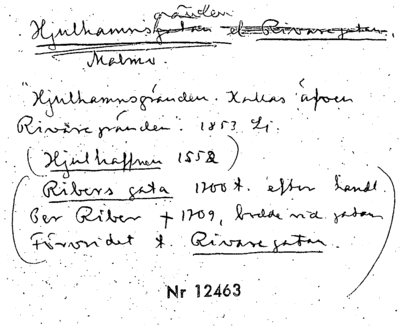 gränden
Hjulhamnsgatan el. Rivaregatan.
Malmö.
"Hjulhamnsgränden. Kallas äfven
Rivāregränden". 1853 Lj.
(Hjulhaffnen 1552)
(Ribers gata 1700t. efter handl.
Per Riber † 1709, bodde vid gatan
Förvridet t. Rivaregatan.)
Nr 12463